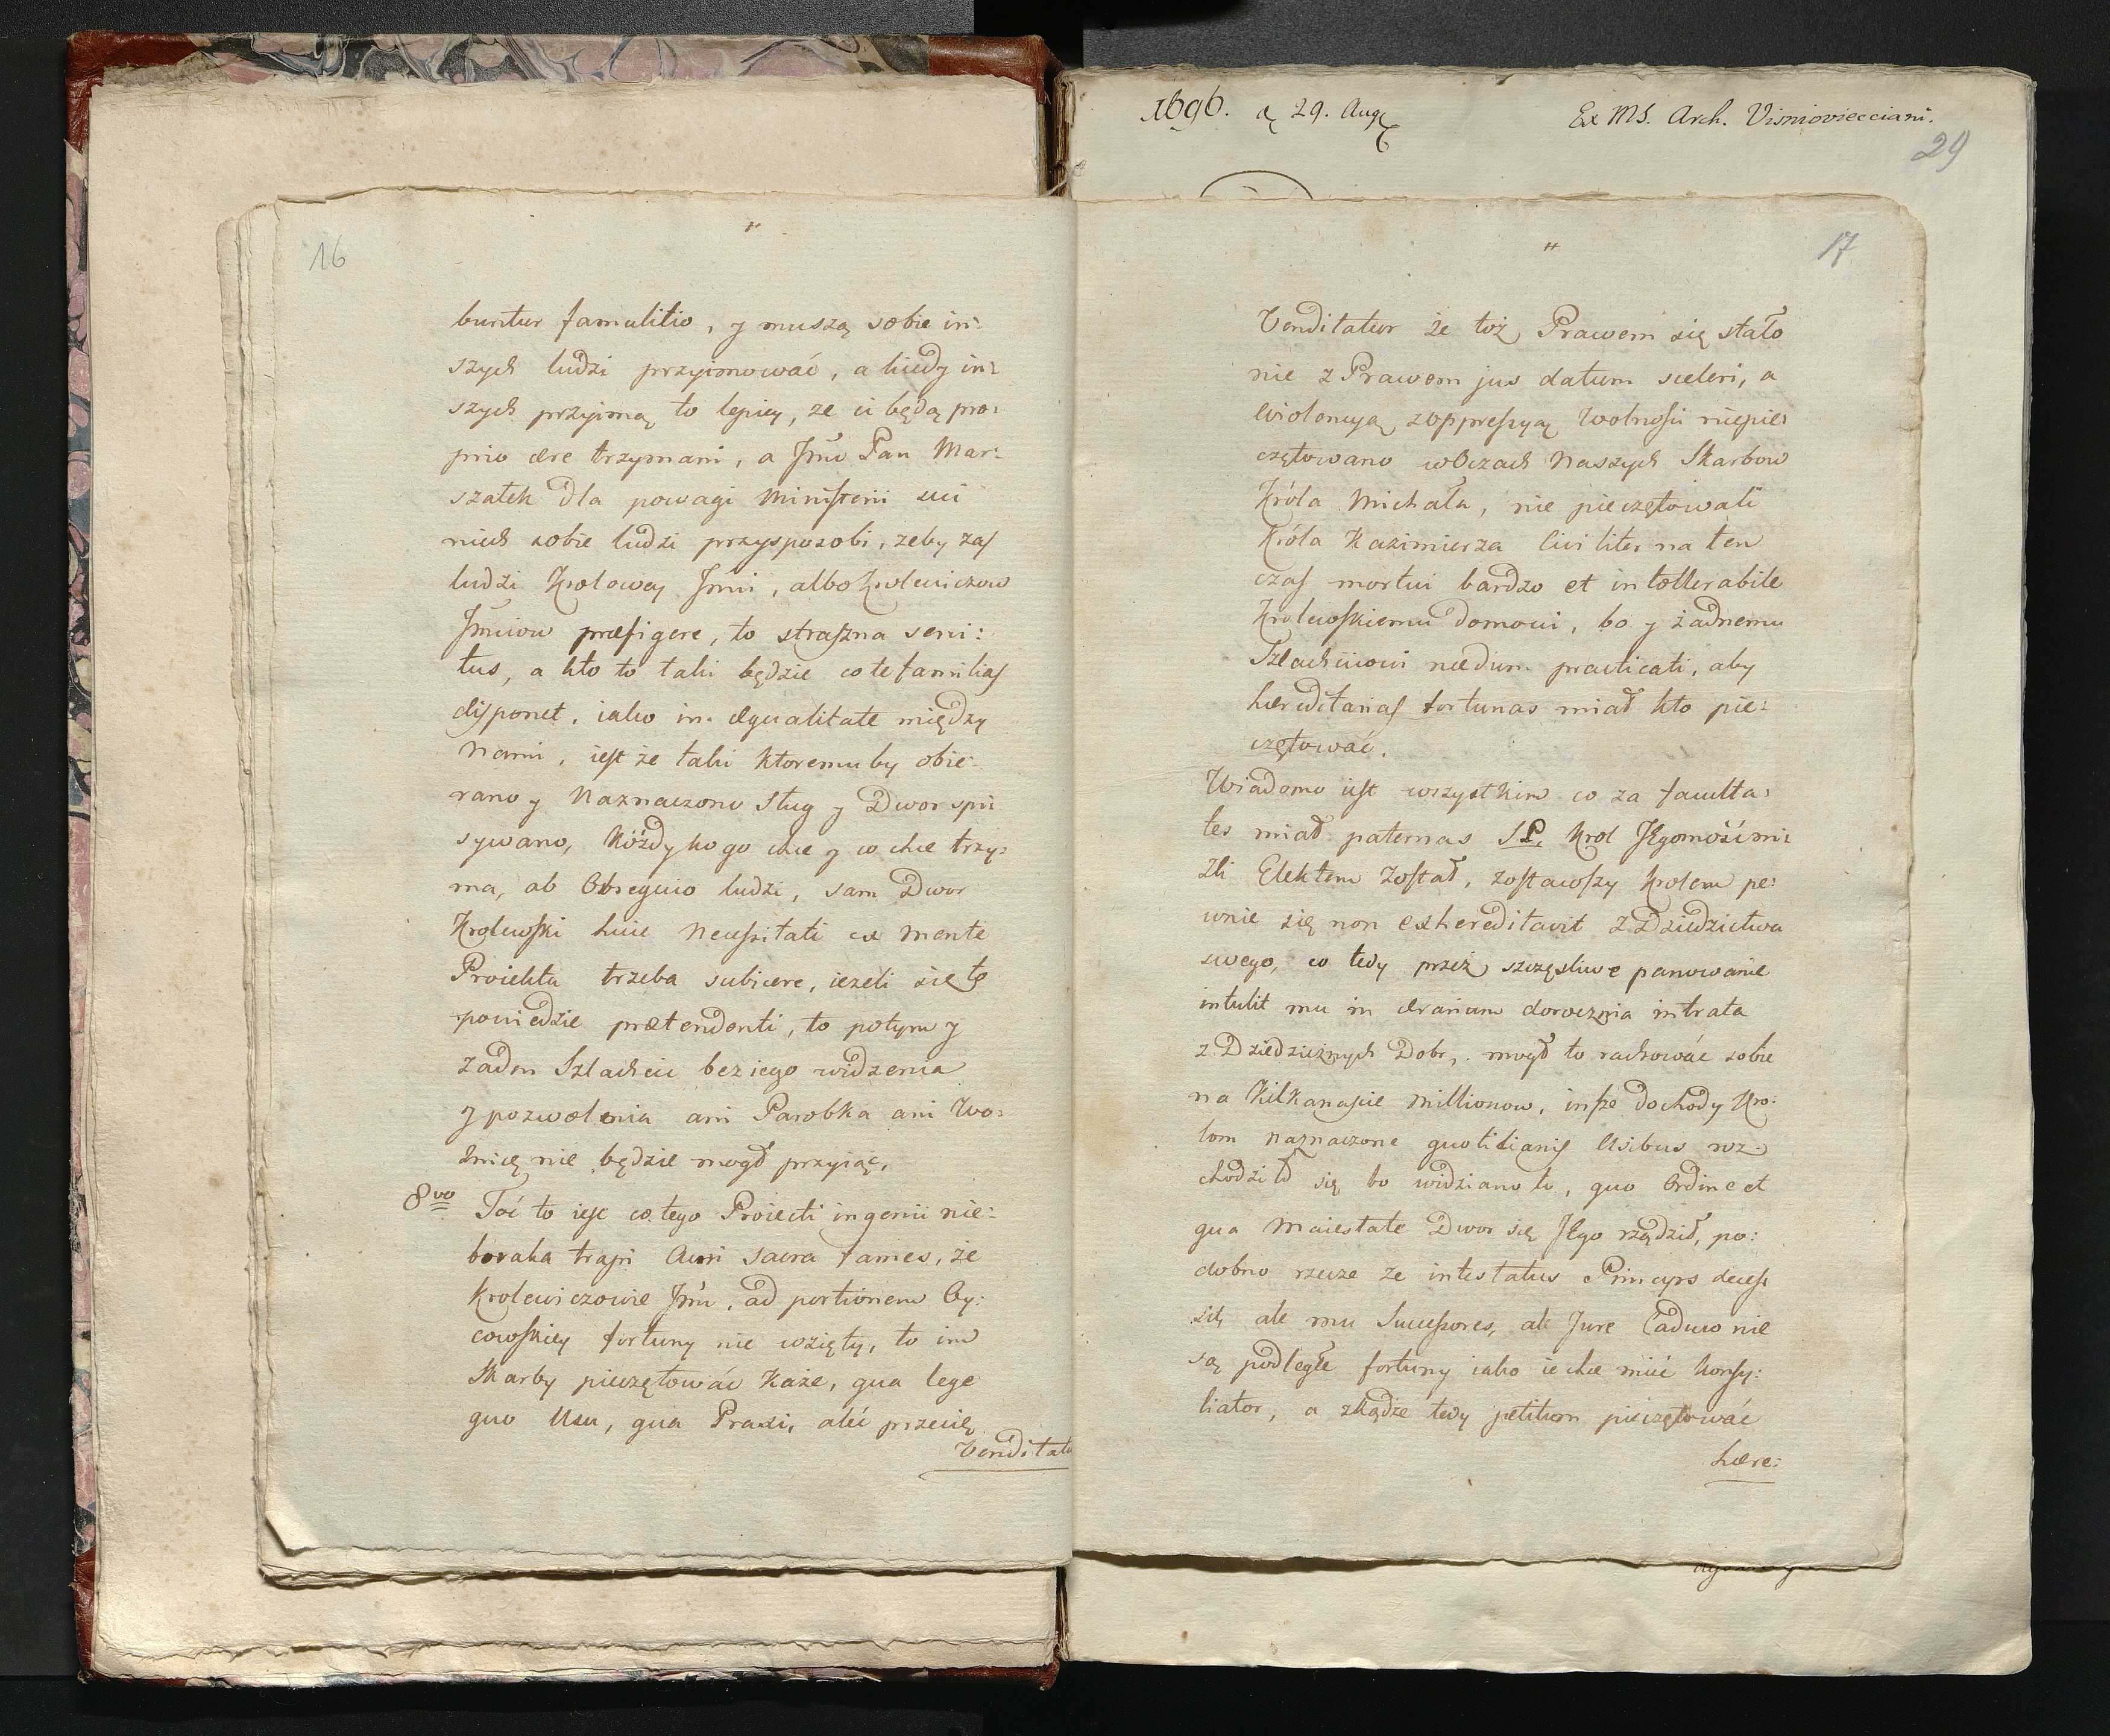 16
buntur famulitio, y muszą sobie in:
szych ludzi przyimować, a kiedy in:
szych przyimą to lepiey, ze ci będą pro:
prio ære trzymani, a Jmć Pan Mar:
szałek dla powagi Ministerii sui
niech sobie ludzi przysposobi, zeby zaś
ludzi Krolowey Jmći, albo Krolewiczow
Jmciow præfigere, to straszna servi:
tus, a kto to taki będzie co te familias
disponet, iako in æqualitate między
Nami, iest ze taki ktoremu by obie:
rano y Naznaczono Sług y Dwor spi
sywano, Kożdy kogo chce y co chce trzy:
ma, ab Obsequio ludzi, sam Dwor
Krolewski huic Necessitati ex mente
Proiektu trzeba subicere, iezeli się to
powiedzie prætendenti, to potym y
zaden Szlachcic bez iego widzenia
y pozwolenia ani Parobka ani Wo:
znicę nie będzie mogł przyiąć.
8vo Toć to iest co tego Proiecti ingenii nie:
boraka trapi Auri sacra fames, że
Krolewiczowie Jmć, ad portionem Oy:
cowskiey fortuny nie wzięły, to im
Skarby pieczętować Każe, qua lege
quo Usu, qua Praxi, aleć przecię
Venditatu
1696. 29. Aug
Ex MS. Arch. Visniovieciani.
29
17
Venditatur że toż Prawem się stało
nie z Prawem jus datum sceleri, a
Wiolencyą z oppressyą Wolności niepie:
czętowano w Oczach Naszych Skarbow
Króla Michała, nie pieczętowali
Króla Kazimierza Civiliter na ten
czas mortui bardzo et intollerabile
Krolewskiemu Domowi, bo y żadnemu
Szlachcicowi nedum practicati, aby
hæreditarias fortunas miał kto pie:
czętować.
Wiadomo iest wszystkim co za faculta:
tes miał paternas S.P. Krol Jegomość ni:
zli Elektem Został, zostawszy Krolem pe:
wnie się non exhereditavit z Dziedzictwa
swego, co tedy przez szczęsliwe panowanie
intulit mu in ærarium doroczna intrata
z Dziedzicznych Dobr, mogł to rachować sobie
na Kilkanaście Millionow, insze dochody Kro:
lom naznaczone quotidianis Usibus roz
chodziły się bo widziano to, quo Ordine et
qua Maiestate Dwor się Jego rządził, po:
dobno rzecze ze intestatus Princeps deces
sit ale mu Successores, ale Jure Caduco nie
są podległe fortuny iako ie chce mieć Konsy:
liator, a zkądze tedy petitum pieczętować
hære: